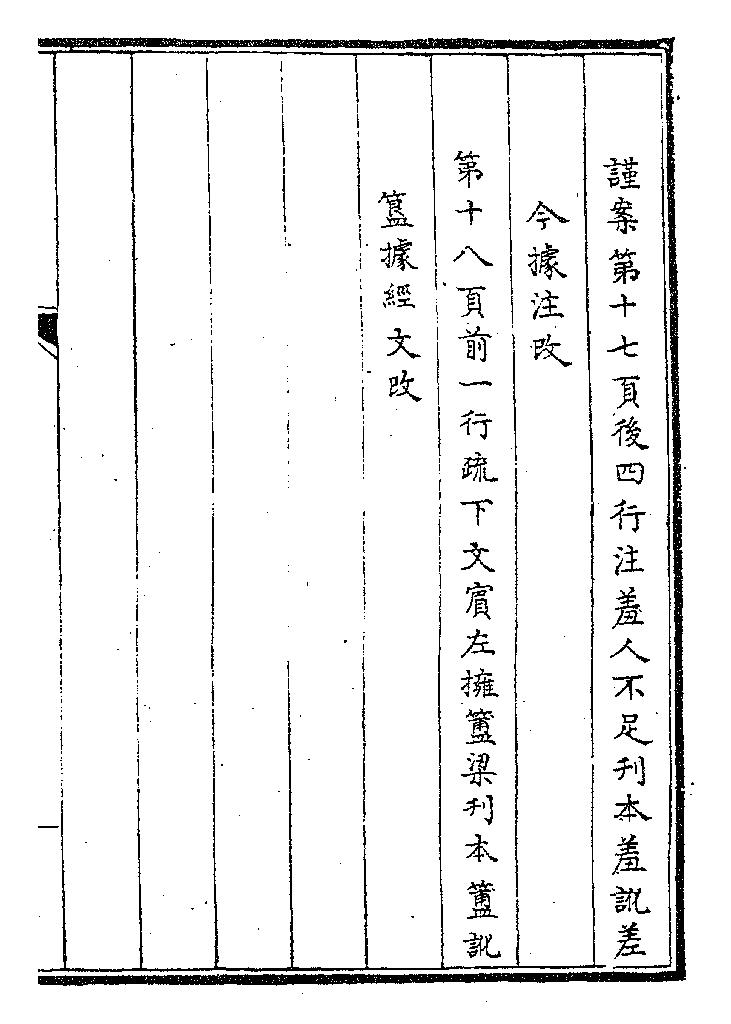 謹案第十七頁後四行注羞人不足刊本羞訛差
今據注改
第十八頁前一行疏下文賔左擁簠梁刊本簠訛
簋據經文改